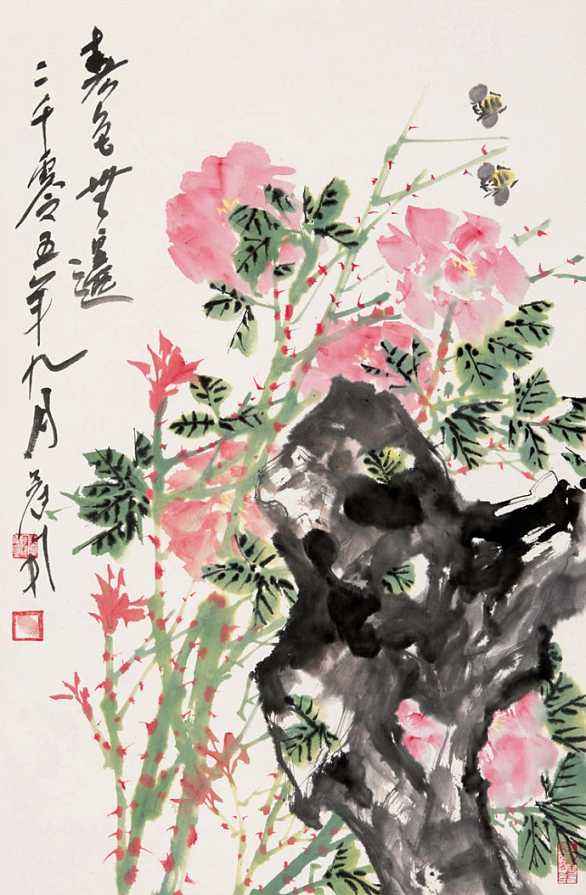 春色無邊
二千零五年九月